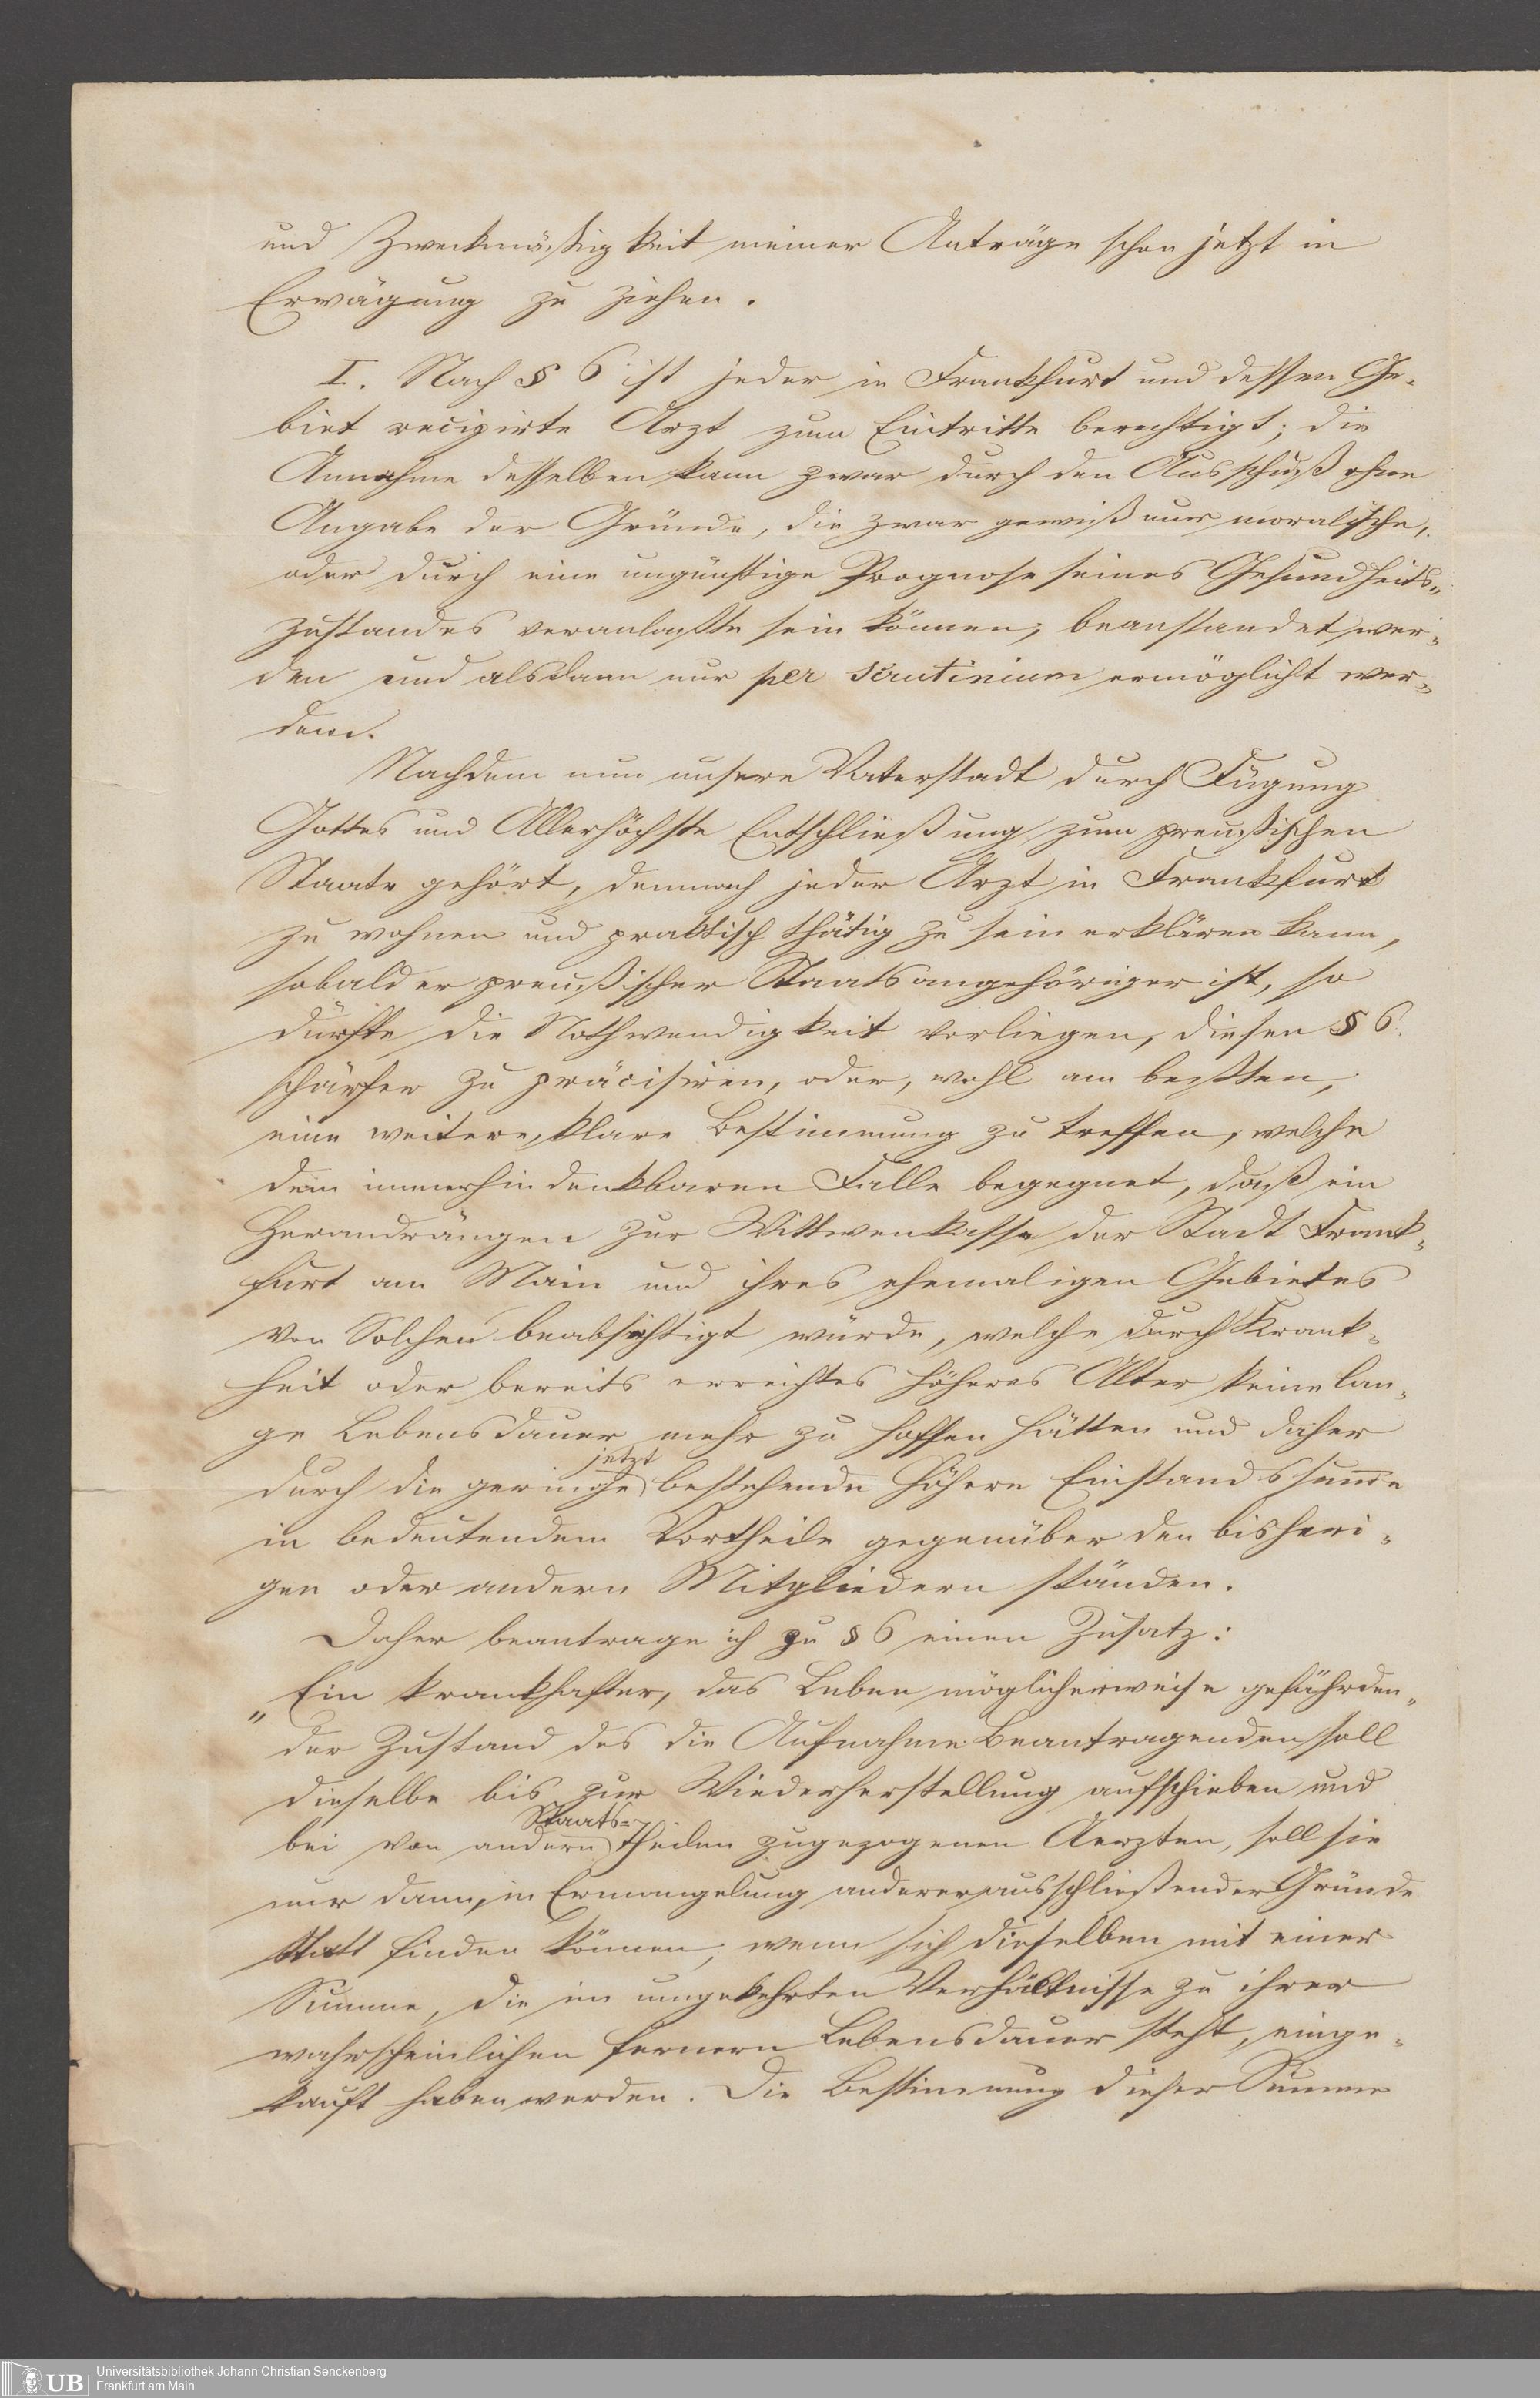 und Zweckmäßigkeit meiner Anträge schon jetzt in
Erwägung zu ziehen.
I. Nach § 6 ist jeder in Frankfurt und dessen Ge-
biet recipirte Arzt zum Eintritte berechtigt; die
Annahme desselben kann zwar durch den Ausschuß ohne
Angabe der Gründe, die zwar gewiß nur moralische,
oder durch eine ungünstige Prognose seines Gesundheits-
zustandes veranlaßte sein können, beanstandet wer-
den und alsdann nur per scrutinium ermöglicht wer-
den.
Nachdem nun unsere Vaterstadt durch Fügung
Gottes und Allerhöchste Entschließung zum preußischen
Staate gehört, demnach jeder Arzt in Frankfurt
zu wohnen und praktisch thätig zu sein erklären kann,
sobald er preußischer Staatsangehöriger ist, so
dürfte die Nothwendigkeit vorliegen, diesen § 6.
schärfer zu präcisiren, oder, wohl am beßten,
eine weitere, klare Bestimmung zu treffen, welche
dem immerhin denkbaren Falle begegnet, daß ein
Herandrängen zur Wittwenkasse der Stadt Frank-
furt am Main und ihres ehemaligen Gebietes
von Solchen beabsichtigt würde, welche durch Krank-
heit oder bereits erreichtes höheres Alter keine lan-
ge Lebensdauer mehr zu hoffen hätten und daher
jetzt
durch die geringe bestehende höhere Einstandssumme
in bedeutendem Vortheile gegenüber den bisheri-
gen oder andern Mitgliedern ständen.
Daher beantrage ich zu § 6 einen Zusatz:
„Ein krankhafter, das Leben möglicherweise gefährden-
der Zustand des die Aufnahme Beantragenden soll
dieselbe bis zur Wiederherstellung aufschieben und
Staats-
bei von andern theilen zugezogenen Aerzten, soll sie
nur dann, in Ermangelung anderer ausschließender Gründe
Statt finden können, wenn sich dieselben mit einer
Summe, die im umgekehrten Verhältnisse zu ihrer
wahrscheinlichen fernern Lebensdauer steht, einge-
kauft haben werden. Die Bestimmung dieser Summe
Universitätsbibliothek Johann Christian Senckenberg
Frankfurt am Main
UB